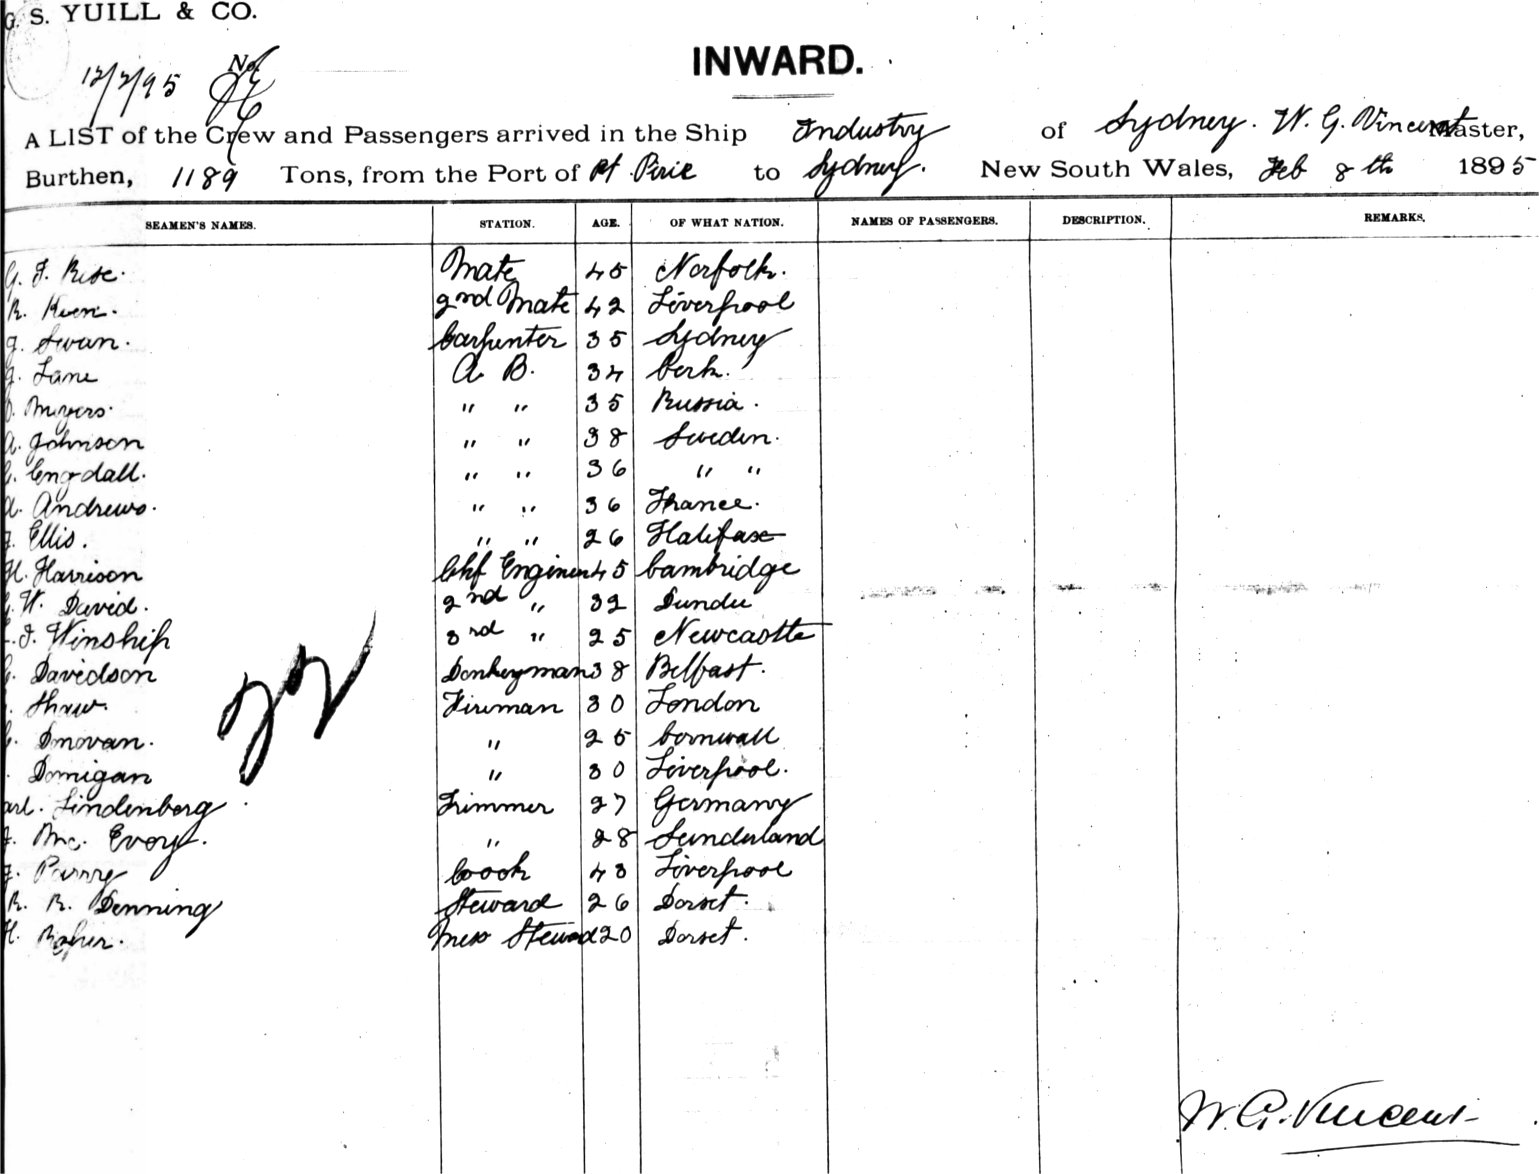 G. S. YUILL & CO.
INWARD.
12/2/95 No.
A LIST of the Crew and Passengers arrived in the Ship Industry of Sydney. W. G. Vincent Master,
Burthen, 1189 Tons, from the Port of Pt Pirie to Sydney. New South Wales, Feb 8th 1895
SEAMEN'S NAMES. STATION. AGE. OF WHAT NATION. NAMES OF PASSENGERS. DESCRIPTION. REMARKS.
G. F. Rise. Mate 45 Norfolk.
R. Keen. 2nd Mate 42 Liverpool
J. Swan. Carpenter 35 Sydney
J. Lane A B. 34 Cork.
Myers. " " 35 Russia.
A. Johnson " " 38 Sweden.
C. Engdall. " " 36 " "
A. Andrews. " " 36 France.
J. Ellis. " " 26 Halifax
H. Harrison Chf Engineer 45 Cambridge
W. David. 2nd " 32 Dundee
J. Winship 3rd " 25 Newcastle
Davidson Donkeyman 38 Belfast.
Shaw. Fireman 30 London
Donovan. " 25 Cornwall
Dornigan " 30 Liverpool.
arl. Lindenberg Trimmer 27 Germany
J. Mc. Evoy. " 28 Sunderland
J. Parry Cook 43 Liverpool
R. R. Denning Steward 26 Dorset.
H. Mess Steward 20 Dorset.
W. G. Vincent